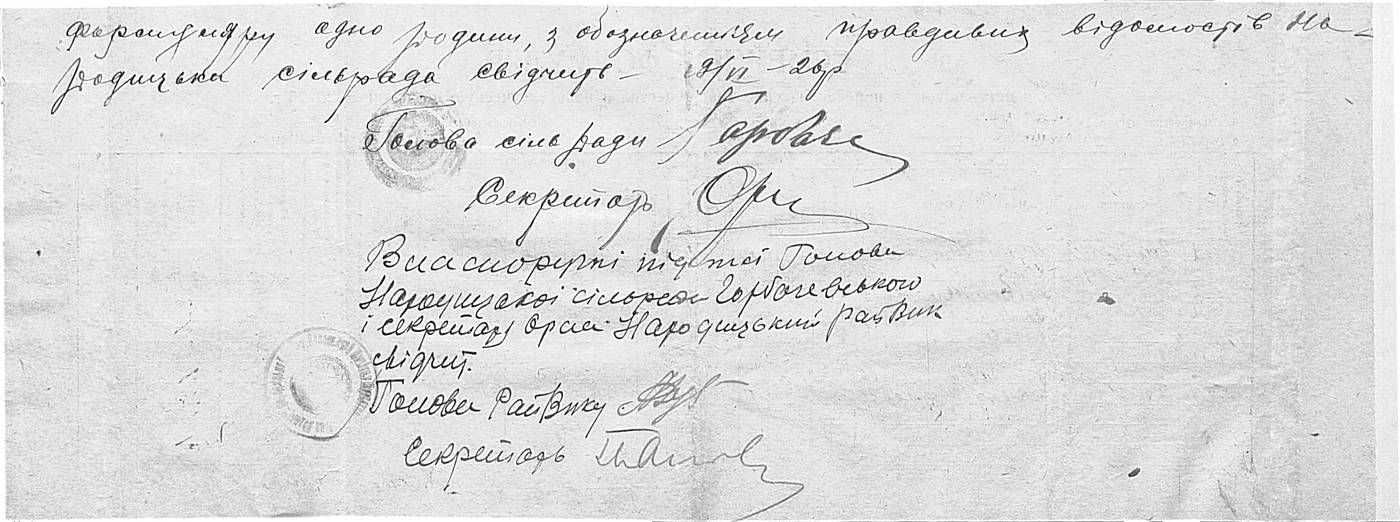 одно родини, з обозначенням правдивих відомостів На-
родицька сільрада свідчить – 19/VI – 26р
Голова сільради
Секретарь
Власноручні підписі Голови
Народицької сільради Горбачевського
і секретаря Народицький райвик
свідчит.
Голова Райвику
Секретарь